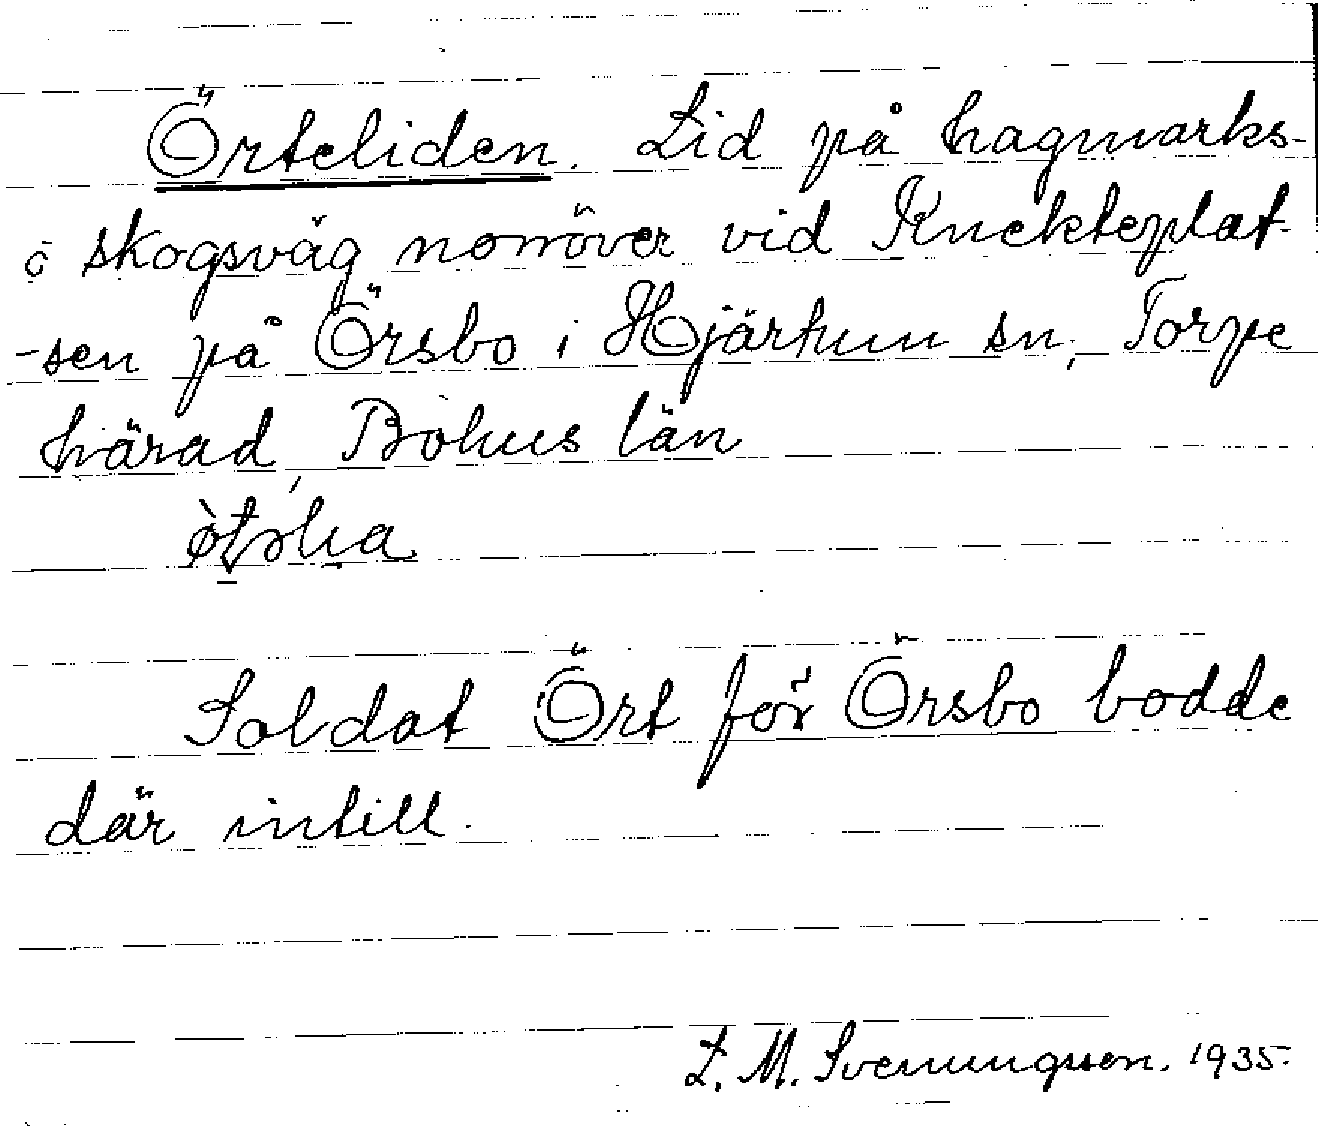 Örteliden. Lid på hagmarks-
o skogsväg norröver vid Knekteplat-
-sen på Örsbo i Hjärtum sn, Torpe
härad, Bohus län
Soldat Ört för Örsbo bodde
där intill.
L. M. Svenungsson. 1935.